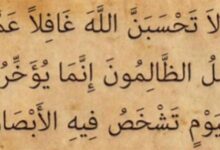 لا تَحْسَبَنَّ اللَّهَ غَافِلاً عَمَّ
لُ الظَّالِمُونَ إِنَّمَا يُؤَخِّرُ
يَوْمٍ تَشْخَصُ فِيهِ الأَبْصَا